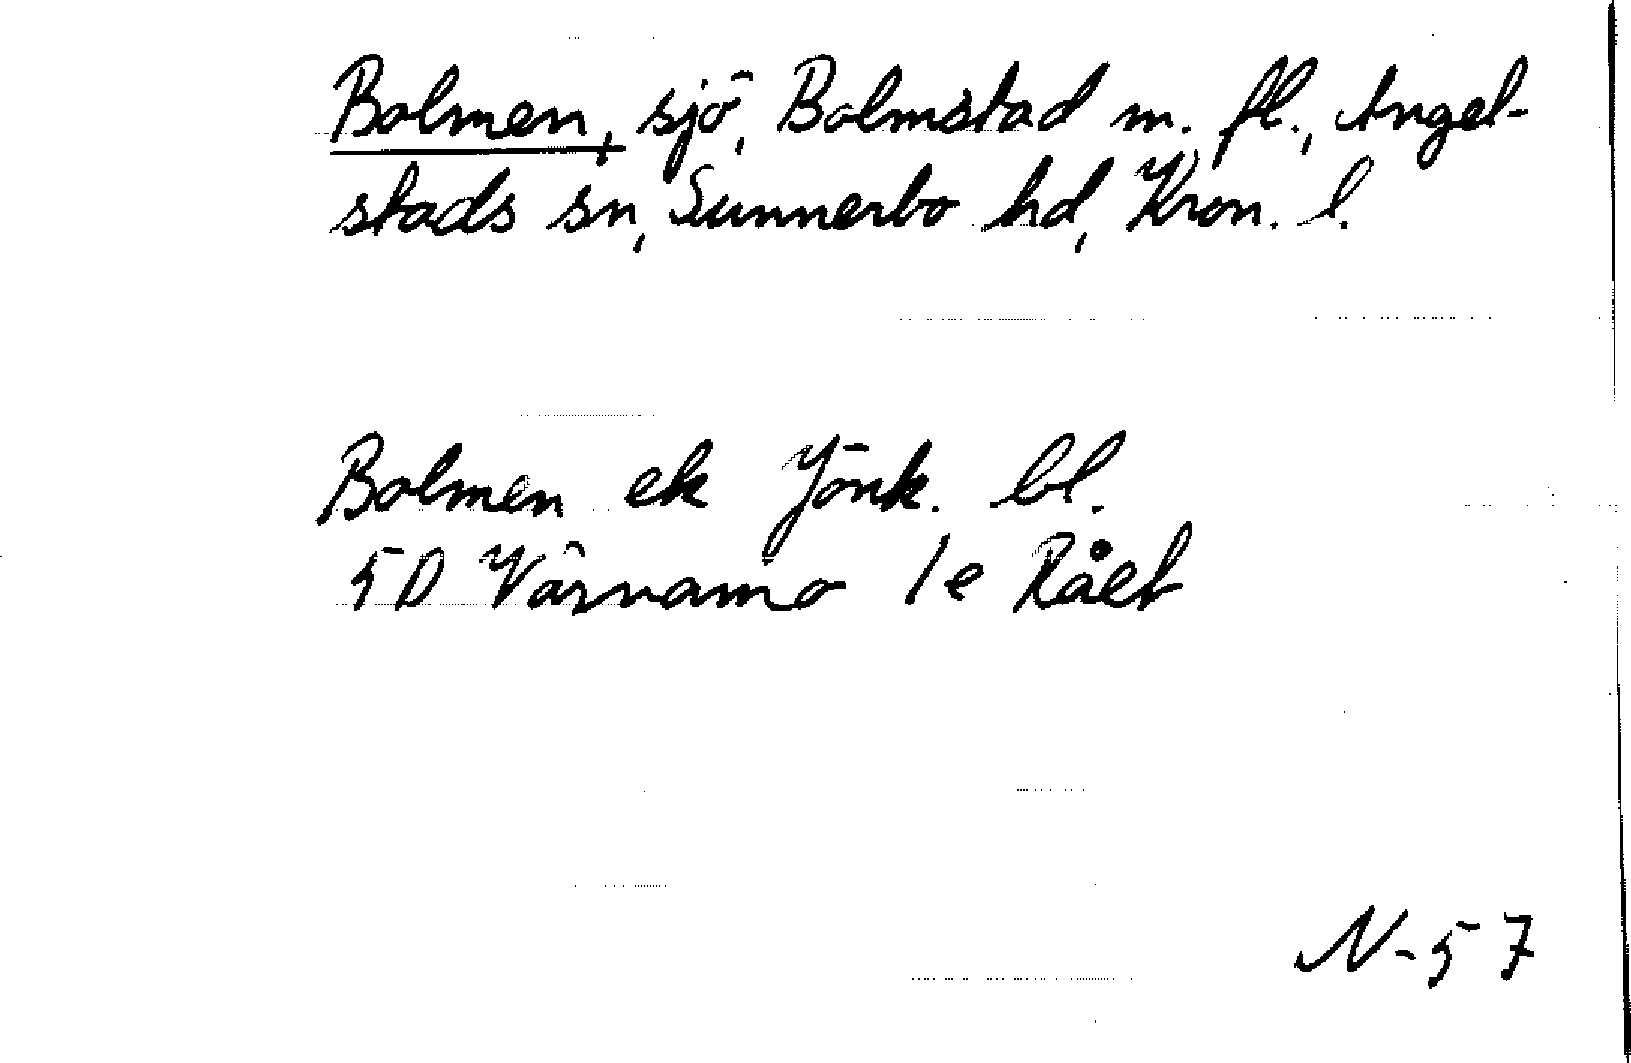 Bolmen, sjö, Bolmstad m. fl., Angel-
stads sn, Sunnerbo hd, Kron. l.
Bolmen ek Jönk. bl.
5D Värnamo 1e Rået
N-57